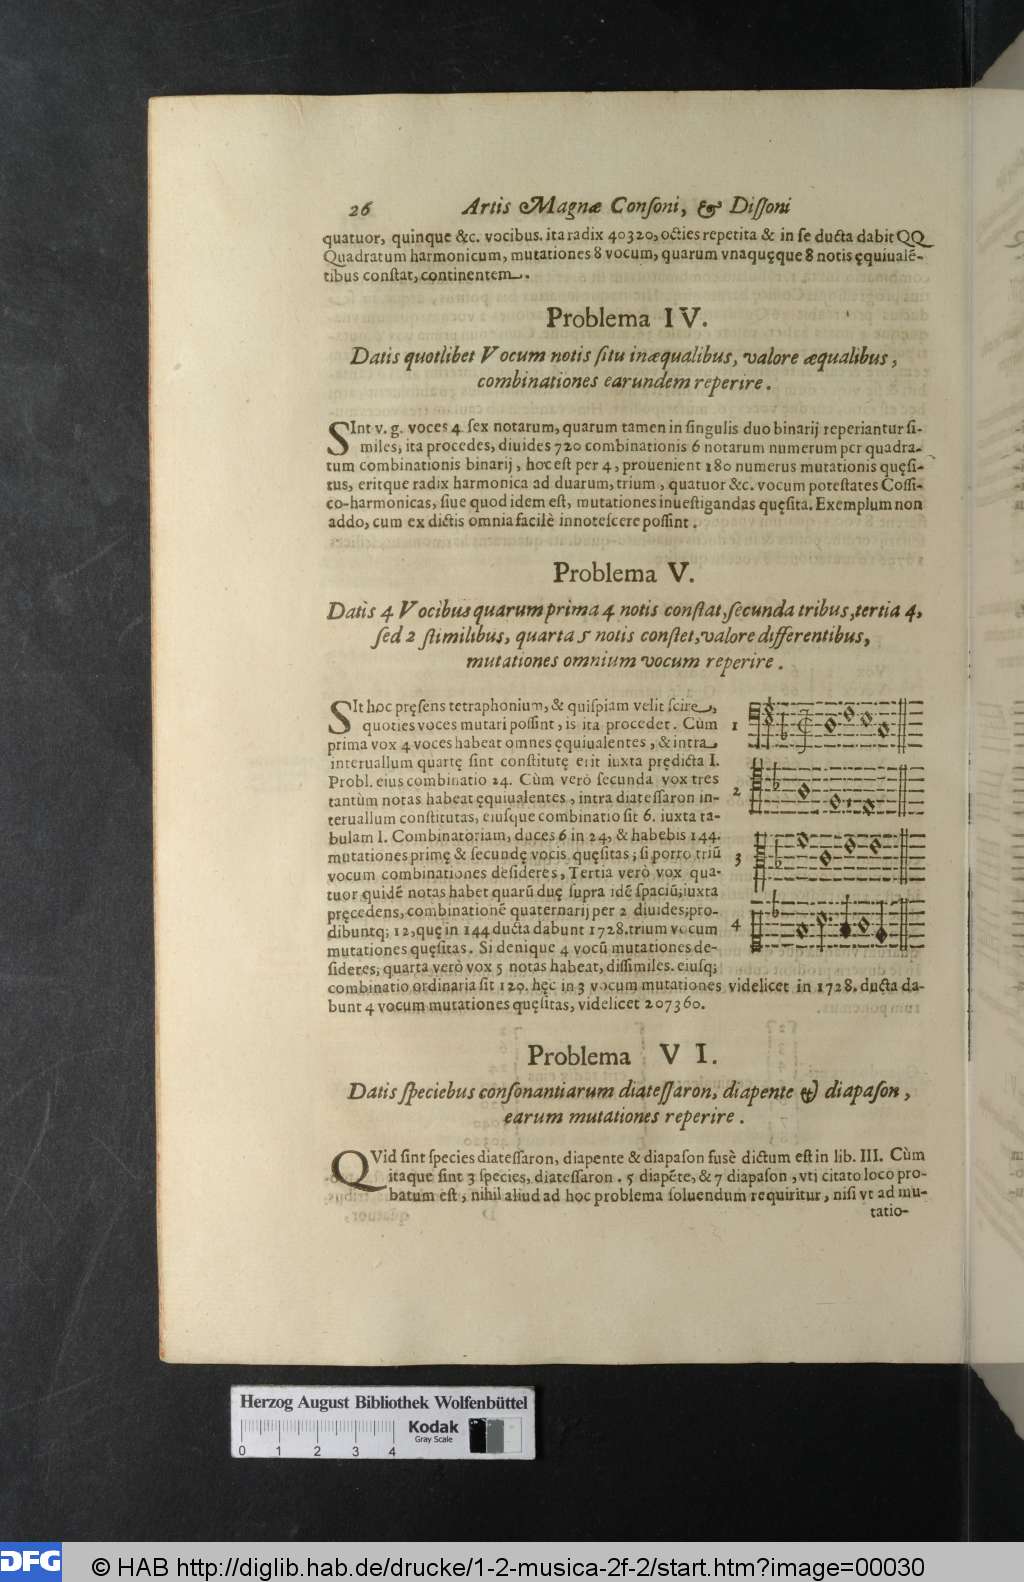 26 Artis Magnæ Consoni, & Dissoni
quatuor, quinque &c. vocibus. ita radix 40320, octies repetita & in se ducta dabit QQ
Quadratum harmonicum, mutationes 8 vocum, quarum vnaquęque 8 notis ęquiualē-
tibus constat, continentem.
Problema IV.
Datis quotlibet Vocum notis situ inæqualibus, valore æqualibus,
combinationes earundem reperire.
SInt v. g. voces 4 sex notarum, quarum tamen in singulis duo binarij reperiantur si-
miles; ita procedes, diuides 720 combinationis 6 notarum numerum per quadra-
tum combinationis binarij, hoc est per 4, prouenient 180 numerus mutationis quęsi-
tus, eritque radix harmonica ad duarum, trium, quatuor &c. vocum potestates Cossi-
co-harmonicas, siue quod idem est, mutationes inuestigandas quęsita. Exemplum non
addo, cum ex dictis omnia facilè innotescere possint.
Problema V.
Datis 4 Vocibus quarum prima 4 notis constat, secunda tribus, tertia 4,
sed 2 similibus, quarta 5 notis constet, valore differentibus,
mutationes omnium vocum reperire.
SIt hoc pręsens tetraphonium, & quispiam velit scire,
quoties voces mutari possint, is ita procedet. Cùm
prima vox 4 voces habeat omnes ęquiualentes, & intra
interuallum quartę sint constitutę erit iuxta prędicta I.
Probl. eius combinatio 24. Cùm verò secunda vox tres
tantùm notas habeat ęquiualentes, intra diatessaron in-
teruallum constitutas, eiusque combinatio sit 6. iuxta ta-
bulam I. Combinatoriam, duces 6 in 24, & habebis 144.
mutationes primę & secundę vocis quęsitas; si porro triū
vocum combinationes desideres, Tertia verò vox qua-
tuor quidē notas habet quarū duę supra idē spaciū; iuxta
pręcedens, combinationē quaternarij per 2 diuides; pro-
dibuntq; 12, quę in 144 ducta dabunt 1728. trium vocum
mutationes quęsitas. Si denique 4 vocū mutationes de-
sideres; quarta verò vox 5 notas habeat, dissimiles. eiusq;
combinatio ordinaria sit 120. hęc in 3 vocum mutationes videlicet in 1728. ducta da-
bunt 4 vocum mutationes quęsitas, videlicet 207360.
1
2
3
4
Problema VI.
Datis speciebus consonantiarum diatessaron, diapente & diapason,
earum mutationes reperire.
QVid sint species diatessaron, diapente & diapason fusè dictum est in lib. III. Cùm
itaque sint 3 species, diatessaron. 5 diapēte, & 7 diapason, vti citato loco pro-
batum est, nihil aliud ad hoc problema soluendum requiritur, nisi vt ad mu-
tatio-
Herzog August Bibliothek Wolfenbüttel
Kodak
Gray Scale
0 1 2 3 4
DFG © HAB http://diglib.hab.de/drucke/1-2-musica-2f-2/start.htm?image=00030